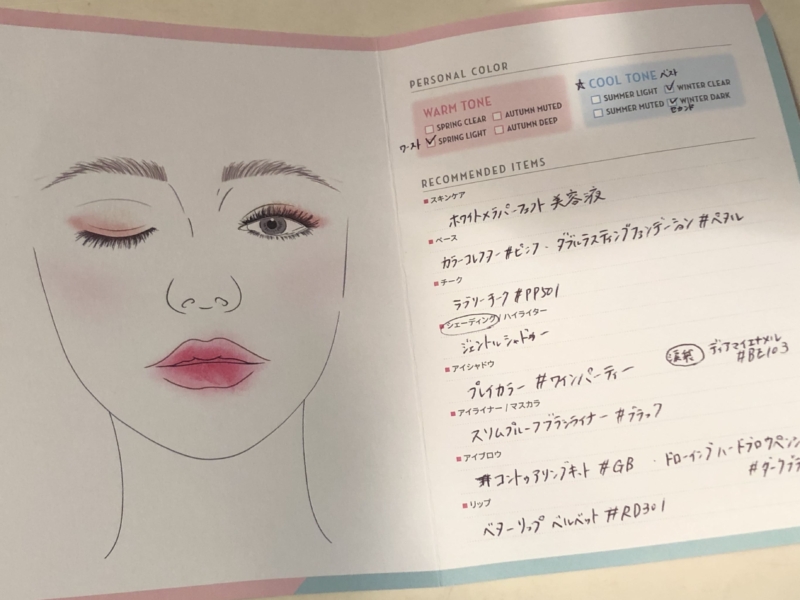 PERSONAL COLOR
WARM TONE
SPRING CLEAR AUTUMN MUTED
ワースト SPRING LIGHT AUTUMN DEEP
☆ COOL TONE ベスト
SUMMER LIGHT WINTER CLEAR
SUMMER MUTED WINTER DARK
セカンド
RECOMMENDED ITEMS
スキンケア
ホワイトメラパーフェクト 美容液
ベース
カラーコレクター #ピンク ・ ダブルラスティングファンデーション #ペタル
チーク
ラブリークッキー #PP501
シェーディング / ハイライター
ジェントルシャドウ
アイシャドウ
プレイカラー #ワインパーティー
涙袋 ディアマイエナメル
#BE103
アイライナー / マスカラ
スリムプルーフブラシライナー #ブラック
アイブロウ
コントゥアリングキット #GB ・ ドローイングハードブロウペン
リップ
ベターリップ ベルベット #RD301